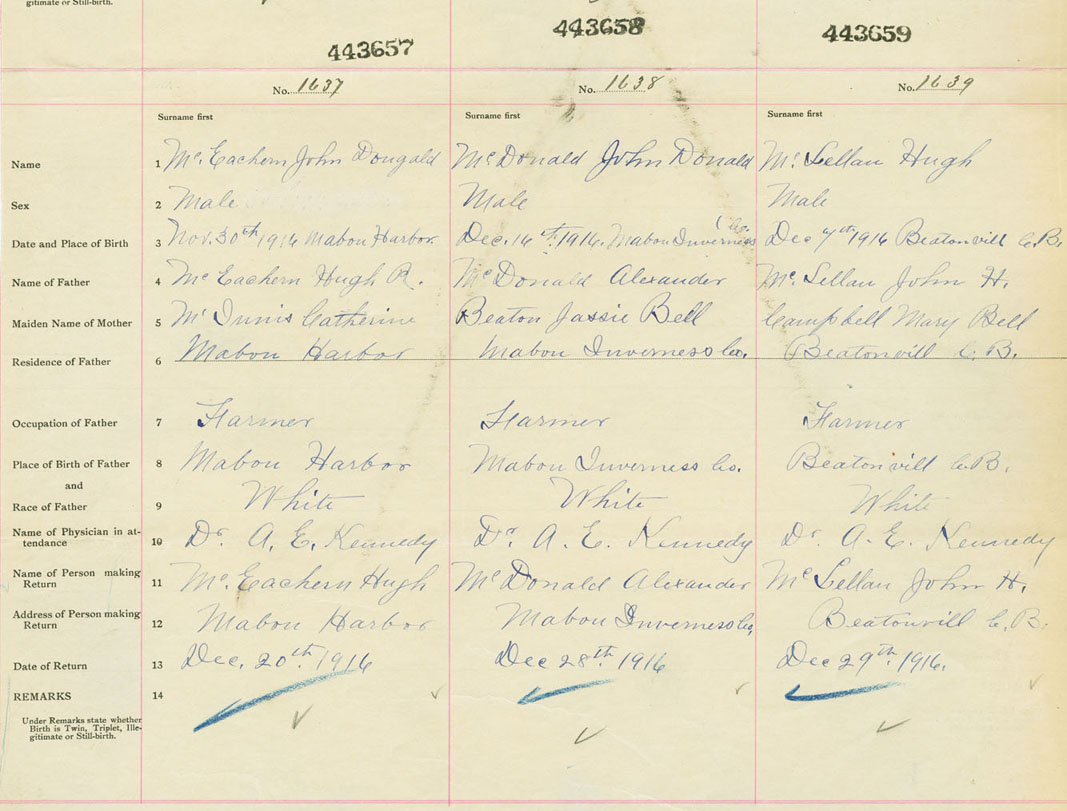 gitimate or Still-birth.
443657 443658 443659
No. 1637 No. 1638 No. 1639
Surname first Surname first Surname first
Name 1 Mc. Eachern John Dougald Mc Donald John Donald Mc. Lellan Hugh
Sex 2 Male Male Male
Date and Place of Birth 3 Nov. 30th 1916 Mabou Harbor. Dec. 16th 1916. Mabou Inverness Co. Dec 7th 1916 Beatonvill C.B.
Name of Father 4 Mc Eachern Hugh R. Mc Donald Alexander Mc. Lellan John H.
Maiden Name of Mother 5 Mc Innis Catherine Beaton Jassie Bell Campbell Mary Bell
Residence of Father 6 Mabou Harbor Mabou Inverness Co. Beatonvill C. B.
Occupation of Father 7 Farmer Farmer Farmer
Place of Birth of Father 8 Mabou Harbor Mabou Inverness Co. Beatonvill C.B.
and
Race of Father 9 White White White
Name of Physician in at-
tendance 10 Dr. A. E. Kennedy Dr. A. E. Kennedy Dr. A. E. Kennedy
Name of Person making
Return 11 Mc. Eachern Hugh Mc Donald Alexander Mc Lellan John H.
Address of Person making
Return 12 Mabou Harbor Mabou Inverness Co. Beatonvill C. B.
Date of Return 13 Dec. 20th 1916 Dec 28th 1916 Dec 29th 1916.
REMARKS 14
Under Remarks state whether
Birth is Twin, Triplet, Ille-
gitimate or Still-birth.